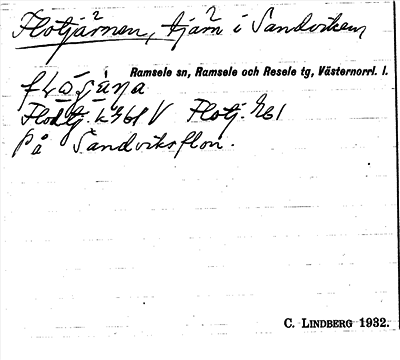 Flotjärnen, tjärn i Sandviken
Ramsele sn, Ramsele och Resele tg, Västernorrl. l.
Flotj. h61
på Sandviksflon.
C. LINDBERG 1932.